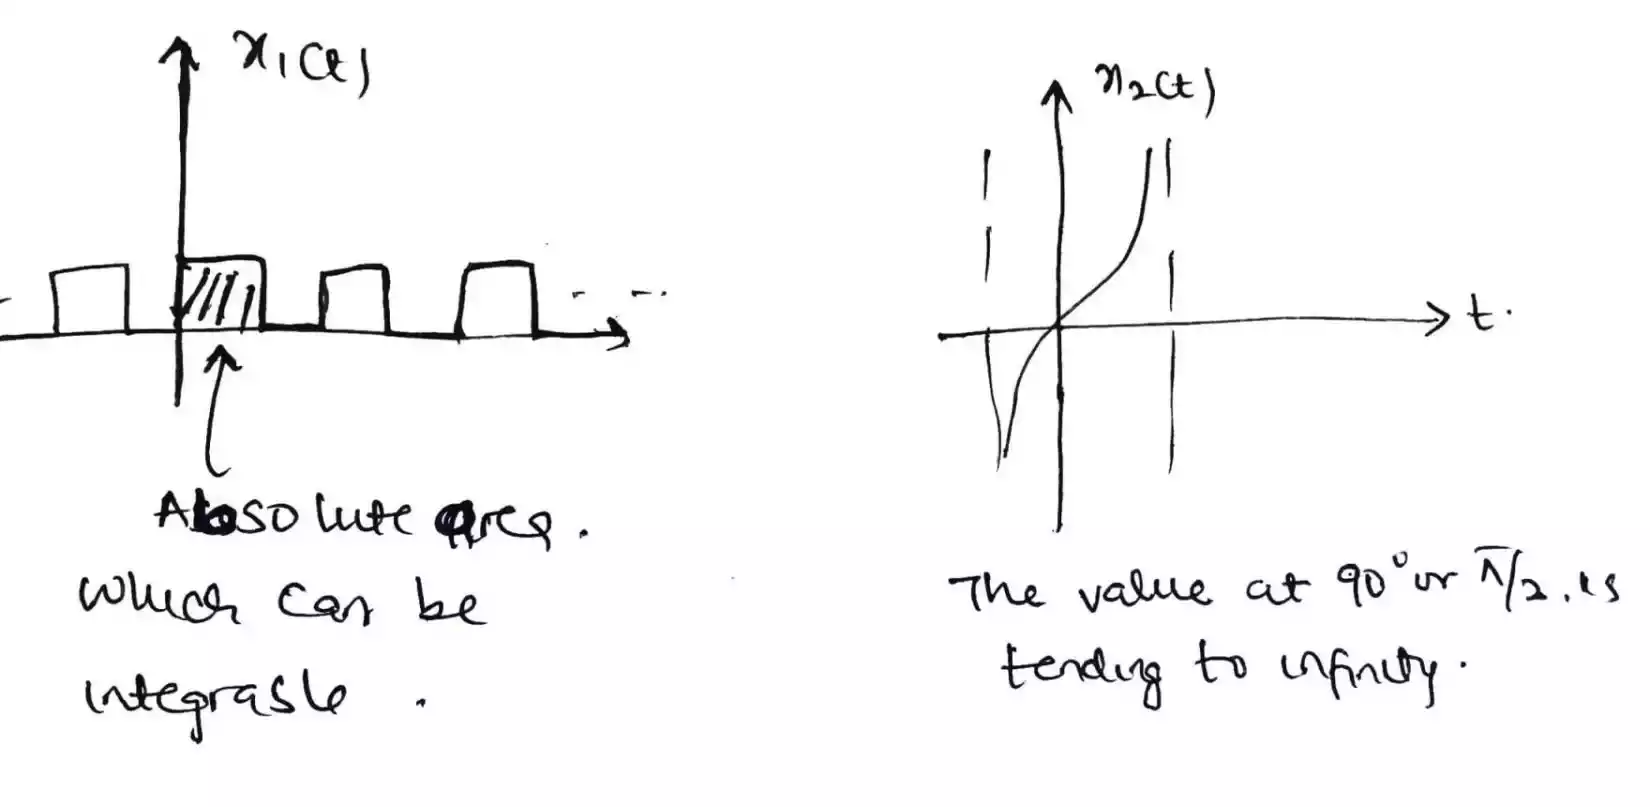 x₁(t)
x₂(t)
t.
Absolute area.
which can be
integrable.
The value at 90° or π/2, is
tending to infinity.